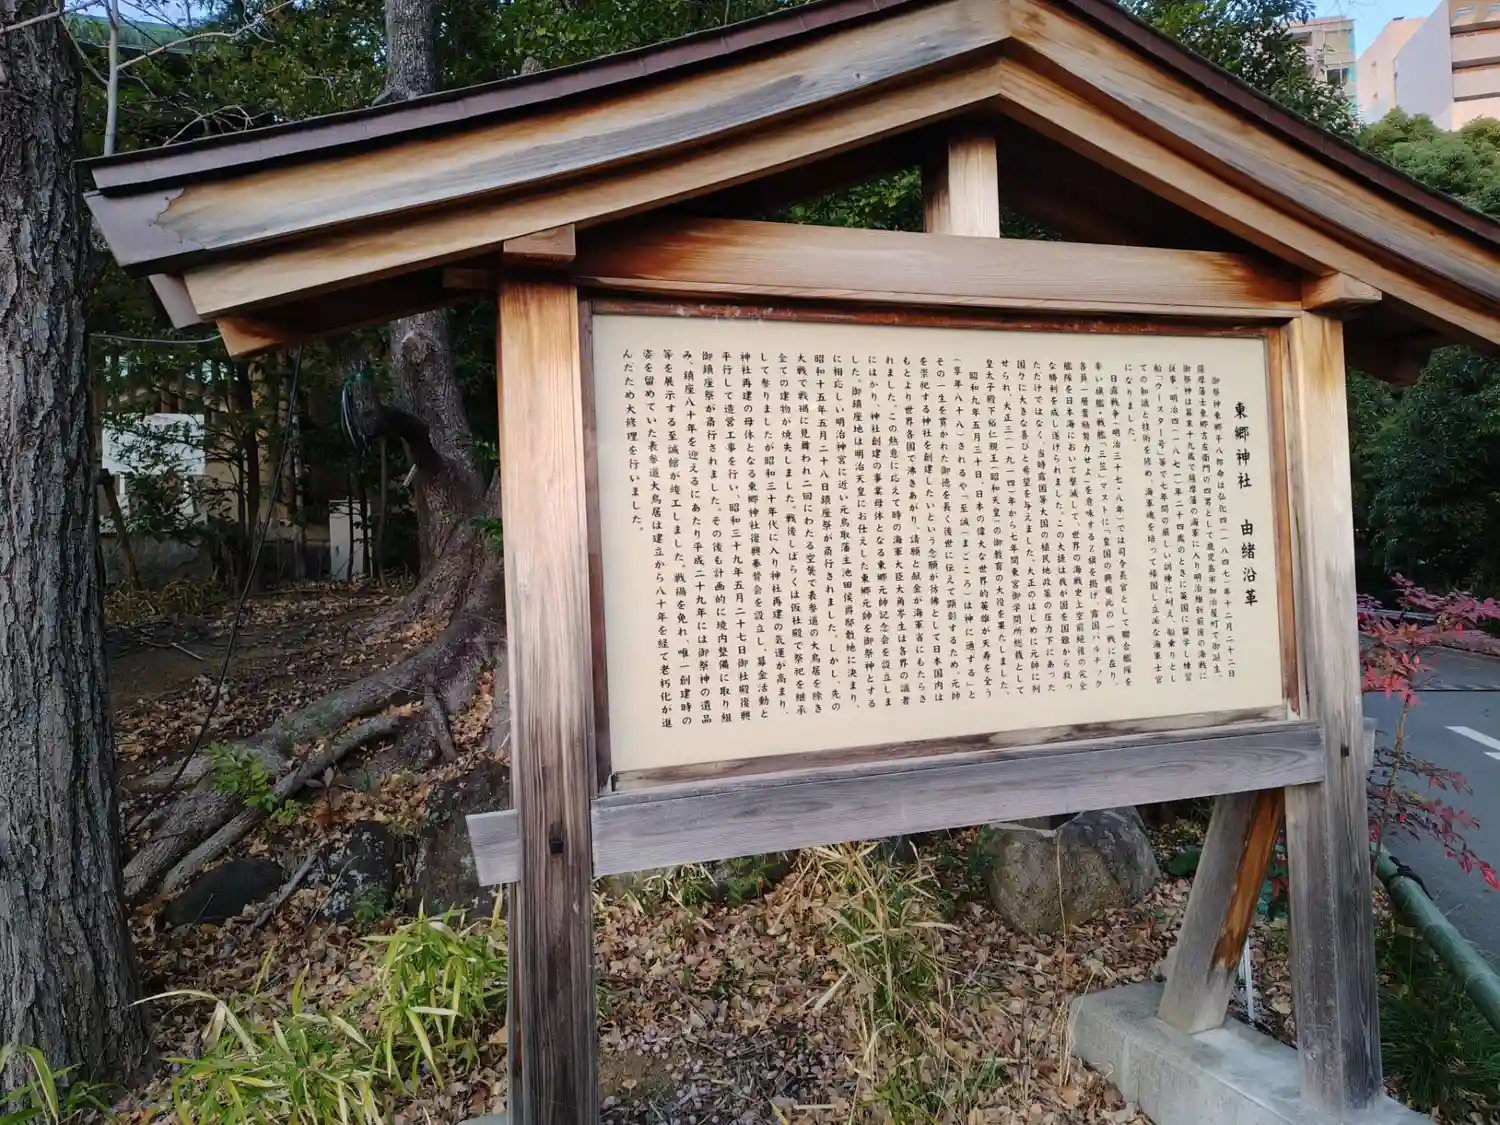 東郷神社 由緒沿革
御祭神東郷平八郎命は弘化四(一八四七)年十二月二十二日
薩摩藩士東郷吉左衛門の四男として鹿児島市加治屋町で御誕生。
御祭神は幕末十九歳で薩摩藩の海軍に入り明治維新前後の海戦に
従事、明治四(一八七一)年二十四歳のときに英国に留学し練習
船「ウースター号」等で七年間の厳しい訓練に耐え、船乗りとし
ての知識と技術を修め、海軍魂を培って帰国し立派な海軍士官
になりました。
日露戦争(明治三十七・八年)では司令長官として聯合艦隊を
率い旗艦・戦艦「三笠」マストに「皇国の興廃此の一戦に在り、
各員一層奮励努力せよ」を意味するZ旗を掲げ、露国バルチック
艦隊を日本海において撃滅して、世界の海戦史上空前絶後の完全
な勝利を成し遂げられました。この大捷は我が国を国難から救っ
ただけではなく、当時露国等大国の植民地政策の圧力下にあった
国々に大きな喜びと希望を与えました。大正のはじめに元帥に列
せられ、大正三(一九一四)年から七年間東宮御学問所総裁として
皇太子殿下裕仁親王(昭和天皇)の御教育の大役を果たしました。
昭和九年五月三十日、日本の偉大な世界的英雄が天寿を全う
(享年八十八)されるや「至誠(まごころ)は神に通ずる」と
その一生を貫かれた御徳を長く後世に伝えて顕彰するため、元帥
を崇祀する神社を創建したいという念願が彷彿として日本国内は
もとより世界各国で沸きあがり、請願と献金が海軍省にもたらさ
れました。この熱意に応えて時の海軍大臣大角岑生は各界の識者
にはかり、神社創建の事業母体となる東郷元帥記念会を設立しま
した。御鎮座地は明治天皇にお仕えした東郷元帥を御祭神とする
に相応しい明治神宮に近い元鳥取藩主池田侯爵邸敷地に決まり、
昭和十五年五月二十八日鎮座祭が斎行されました。しかし、先の
大戦で戦禍に見舞われ二回にわたる空襲で表参道の大鳥居を除き
全ての建物が焼失しました。戦後しばらくは仮社殿で祭祀を継承
して参りましたが昭和三十年代に入り神社再建の気運が高まり、
神社再建の母体となる東郷神社復興奉賛会を設立し、募金活動と
平行して造営工事を行い、昭和三十九年五月二十七日御社殿復興
御鎮座祭が斎行されました。その後も計画的に境内整備に取り組
み、鎮座八十年を迎えるにあたり平成二十九年には御祭神の遺品
等を展示する至誠館が竣工しました。戦禍を免れ、唯一創建時の
姿を留めていた表参道大鳥居は建立から八十年を経て老朽化が進
んだため大修理を行いました。